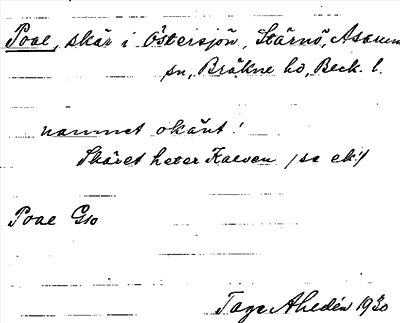 Poae, skär i Östersjön, Stärnö, Asarum
sn, Bräkne hd, Bleck. l.
namnet okänt!
Skäret heter Kaeven (se ek!)
Poae Gso
Tage Ahldén 1930